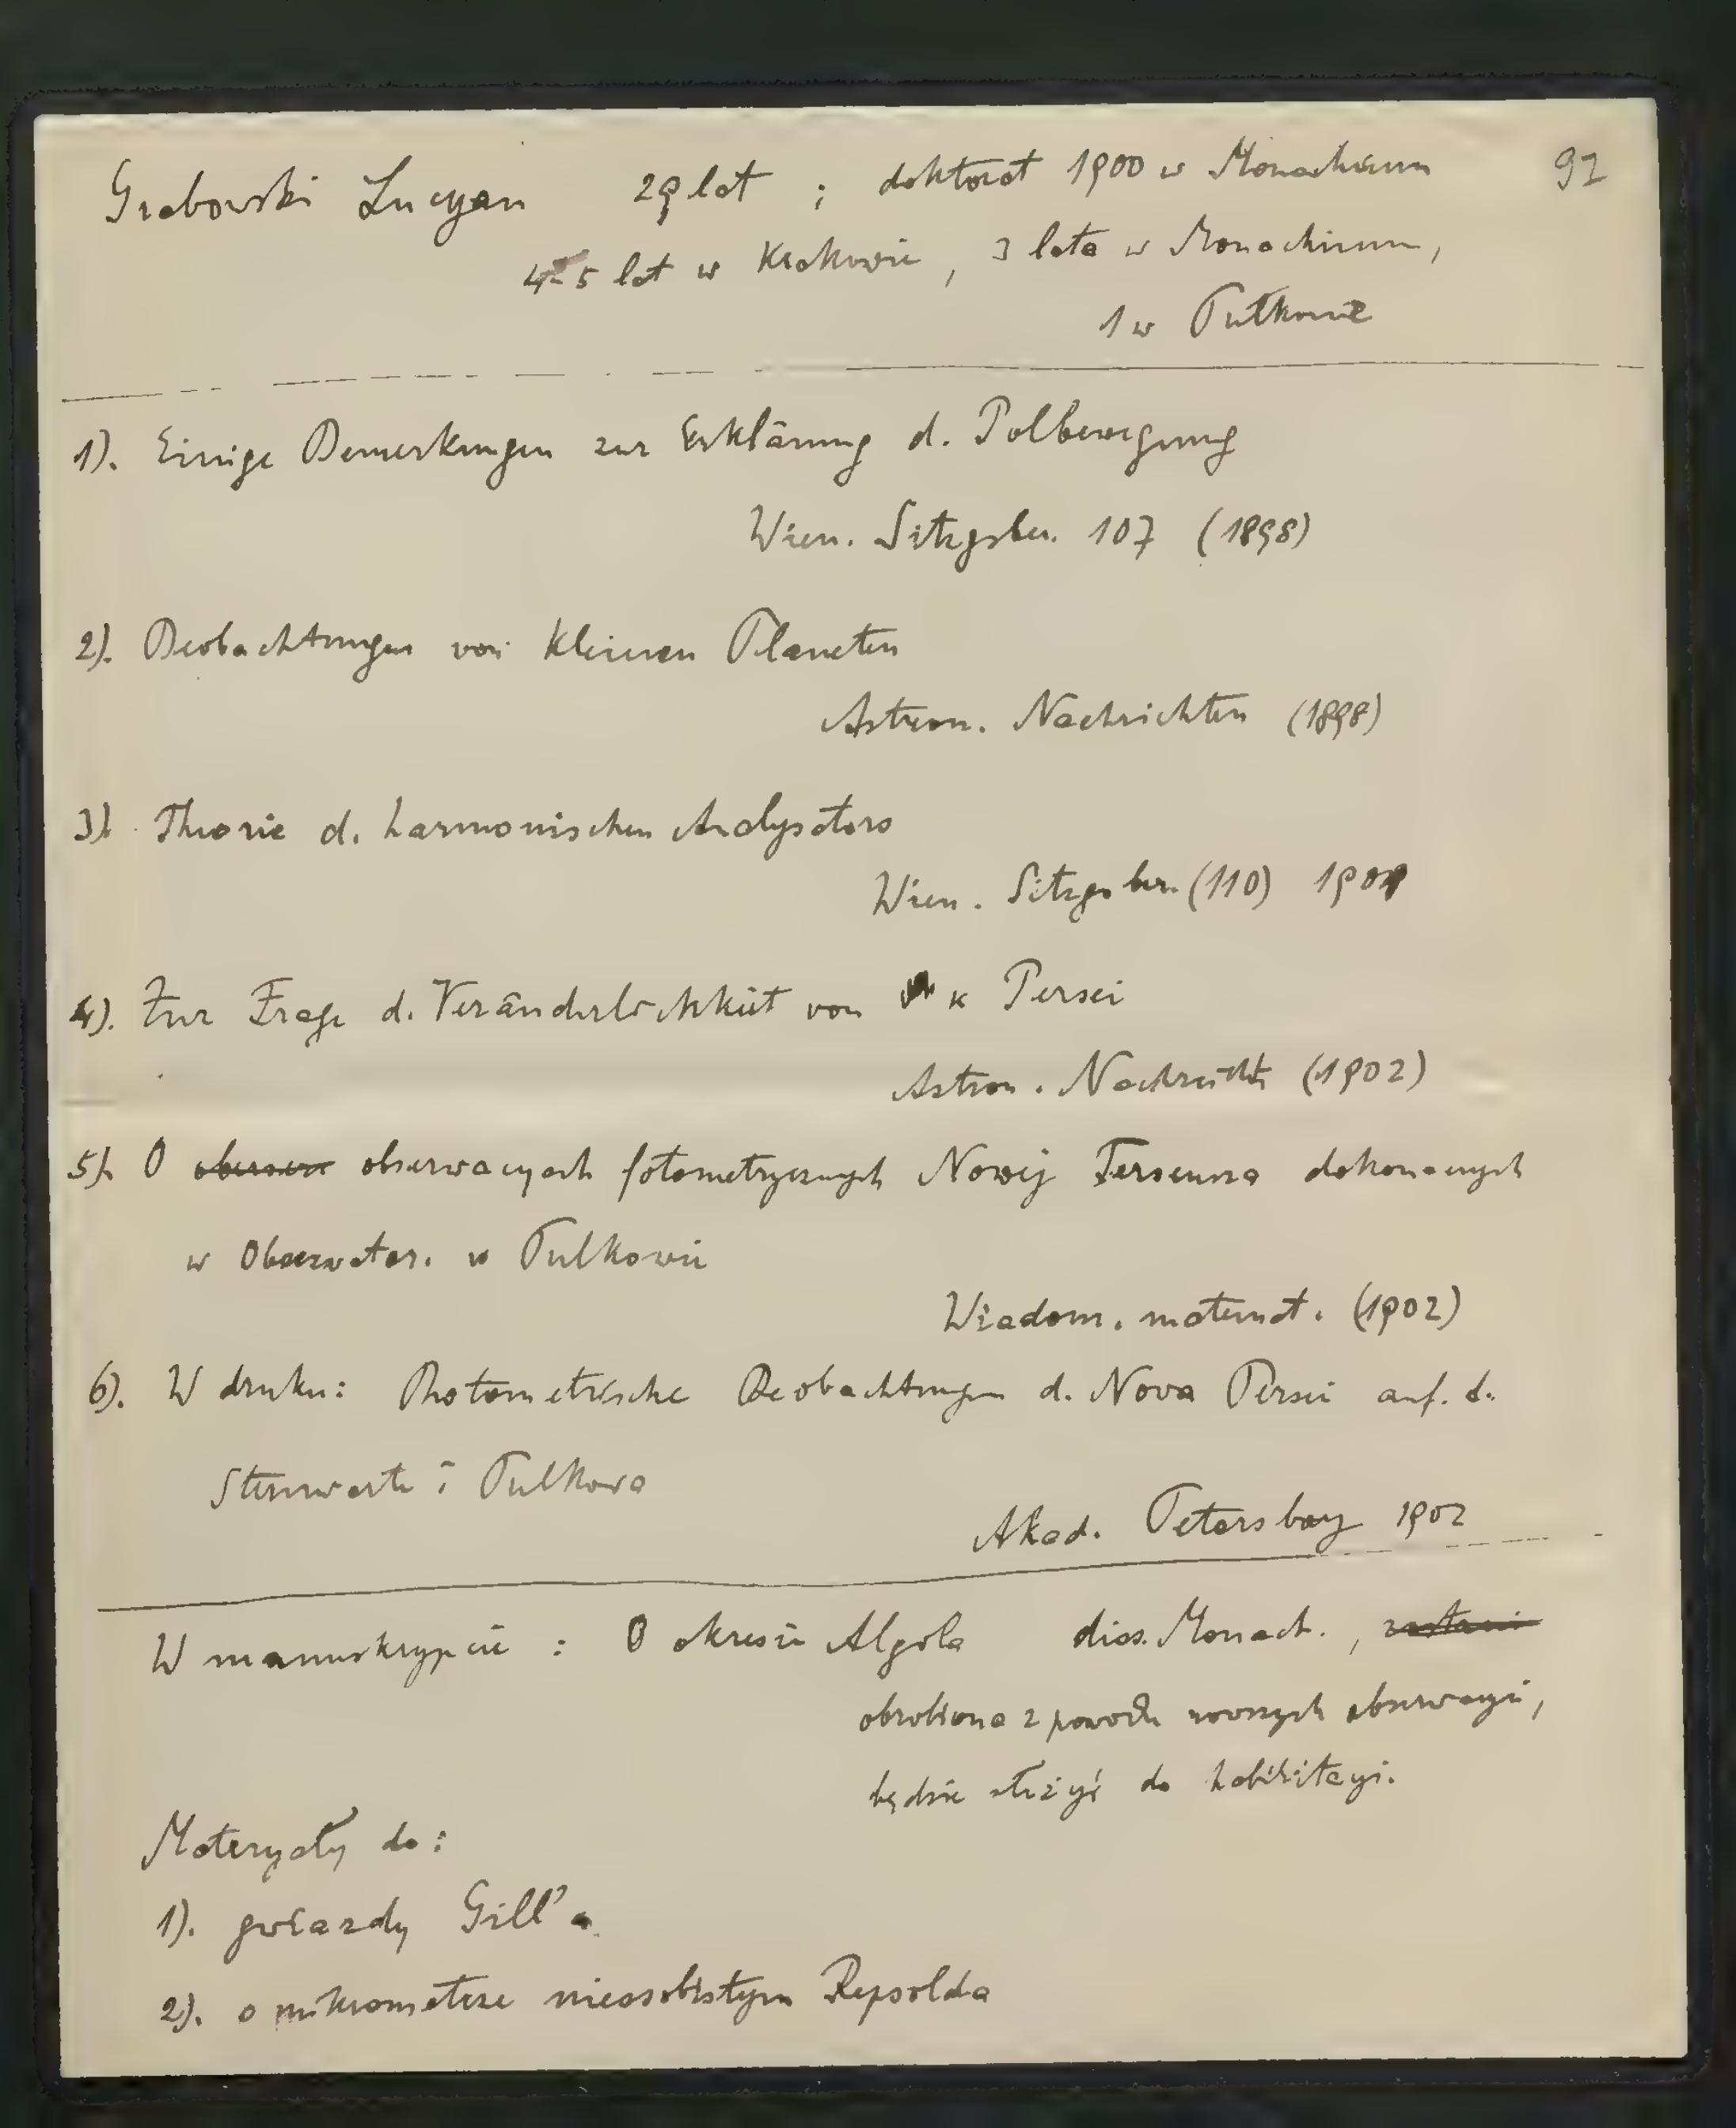 Grabowski Lucyan 29 lat ; doktorat 1900 w Monachium 92
4-5 lat w Krakowie , 3 lata w Monachium,
1 w Pułkowie
1). Einige Bemerkungen zur Erklärung d. Polbewegung
Wien. Sitzgsber. 107 (1898)
2). Beobachtungen von kleinen Planeten
Astron. Nachrichten (1898)
3). Theorie d. harmonischen Analysators
Wien. Sitzgsber. (110) 1901
4). Zur Frage d. Veränderlichkeit von κ Persei
Astron. Nachricht (1902)
5). O obserwacyach fotometrycznych Nowej Perseusza dokonanych
w Obserwator. w Pulkowie
Wiadom. matemat. (1902)
6). W druku: Photometrische Beobachtungen d. Nova Persei auf. d.
Sternwarte i Pulkowa
Akad. Petersburg 1902
W manuskrypcie : O okresie Algola diss. Monach. ,
obrobiona z powodu nowszych obserwacyi,
będzie służyć do habilitacyi.
Materyały do:
1). gwiazdy Gill'a
2). o mikrometrze nieosobistym Repsolda